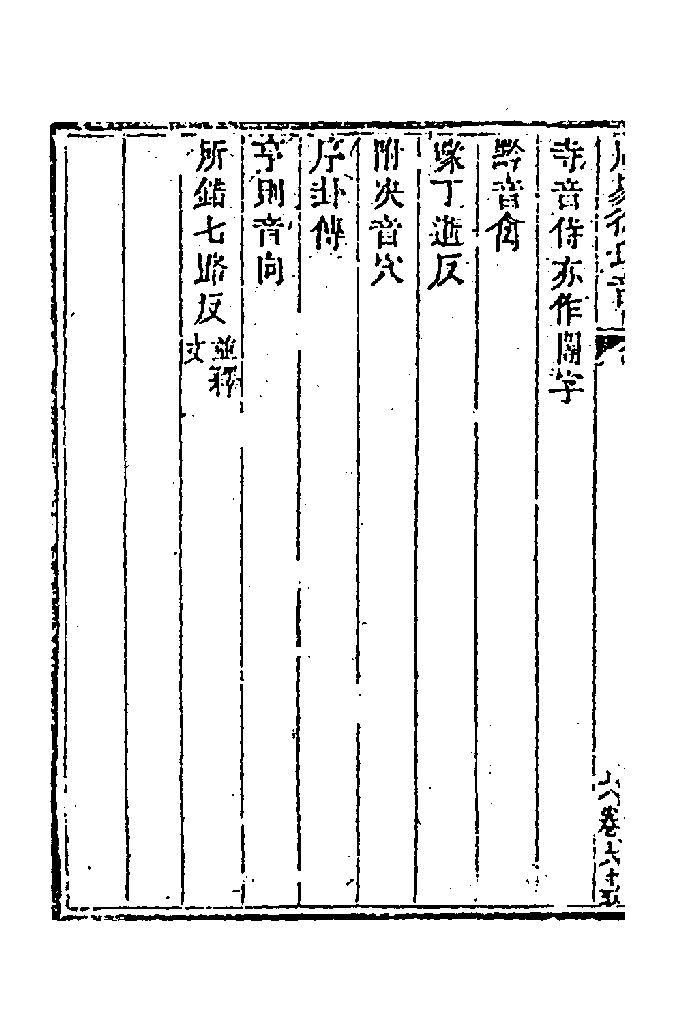 寺音侍亦作閽字
黔音禽
喙丁遘反
附决音穴
序卦傳
亨則音向
所錯七路反並釋文